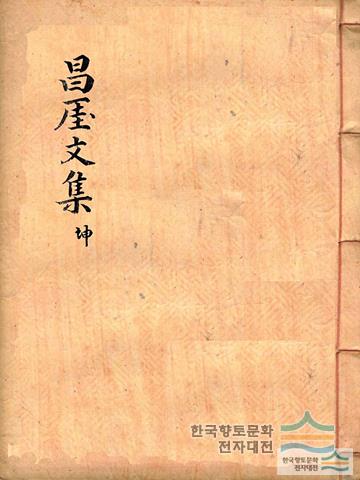 昌厓文集
坤
한국향토문화
전자대전
한국향토문화
전자대전